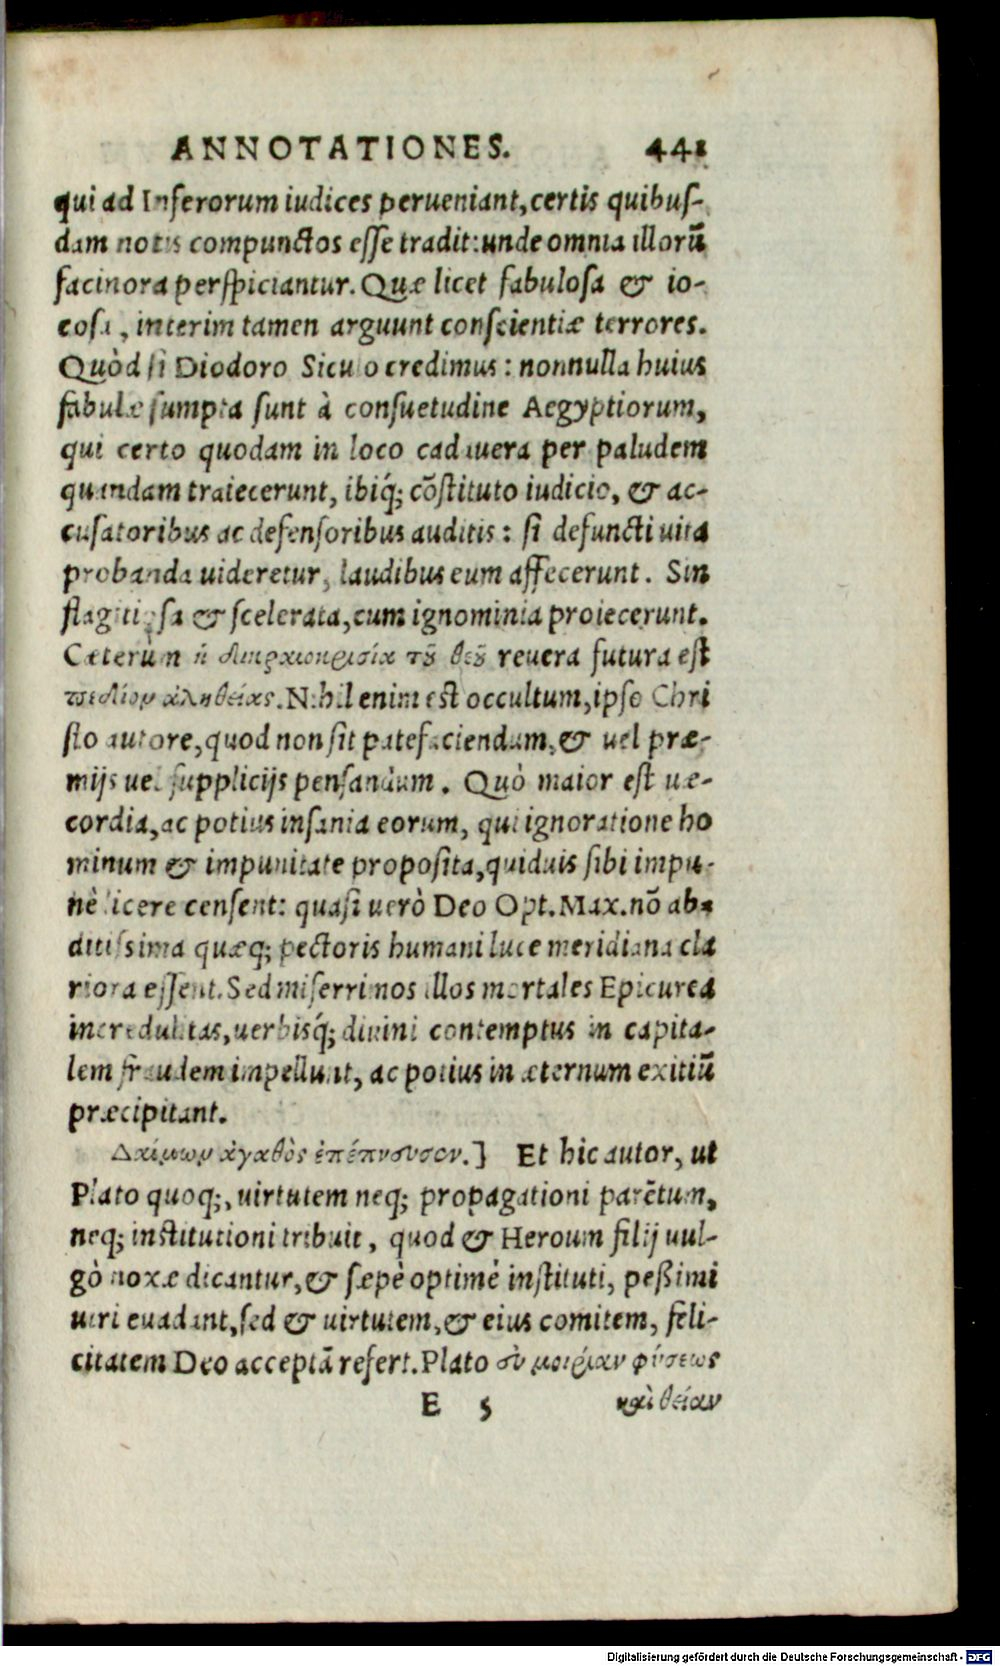 ANNOTATIONES. 441
qui ad Inferorum iudices perueniant, certis quibus-
dam notis compunctos esse tradit: unde omnia illorũ
facinora perspiciantur. Quæ licet fabulosa & io-
cosa, interim tamen arguunt conscientiæ terrores.
Quòd si Diodoro Siculo credimus: nonnulla huius
fabulæ sumpta sunt à consuetudine Aegyptiorum,
qui certo quodam in loco cadauera per paludem
quandam traiecerunt, ibiq́; cõstituto iudicio, & ac-
cusatoribus ac defensoribus auditis: si defuncti uita
probanda uideretur, laudibus eum affecerunt. Sin
flagitiosa & scelerata, cum ignominia proiecerunt.
Cæterùm ἡ δικαιοκρισία τȣ͂ θεȣ͂ reuera futura est
πεδίον ἀληθείας. Nihil enim est occultum, ipso Chri
sto autore, quod non sit patefaciendum, & uel præ-
mijs uel supplicijs pensandum. Quò maior est uæ-
cordia, ac potius insania eorum, qui ignoratione ho
minum & impunitate proposita, quiduis sibi impu-
nè licere censent: quasi uerò Deo Opt. Max. nõ ab-
ditissima quæq; pectoris humani luce meridiana cla
riora essent. Sed miserrimos illos mortales Epicurea
incredulitas, uerbisq́; diuini contemptus in capita-
lem fraudem impellunt, ac potius in æternum exitiũ
præcipitant.
Δαίμων ἀγαθὸς ἐπέπνευσεν.] Et hic autor, ut
Plato quoq;, uirtutem neq; propagationi parẽtum,
neq; institutioni tribuit, quod & Heroum filij uul-
gò noxæ dicantur, & sæpè optimè instituti, peßimi
uiri euadant, sed & uirtutem, & eius comitem, feli-
citatem Deo acceptã refert. Plato οὐ μοιρίαν φύσεως
E 5 καὶ θείαν
Digitalisierung gefördert durch die Deutsche Forschungsgemeinschaft - DFG